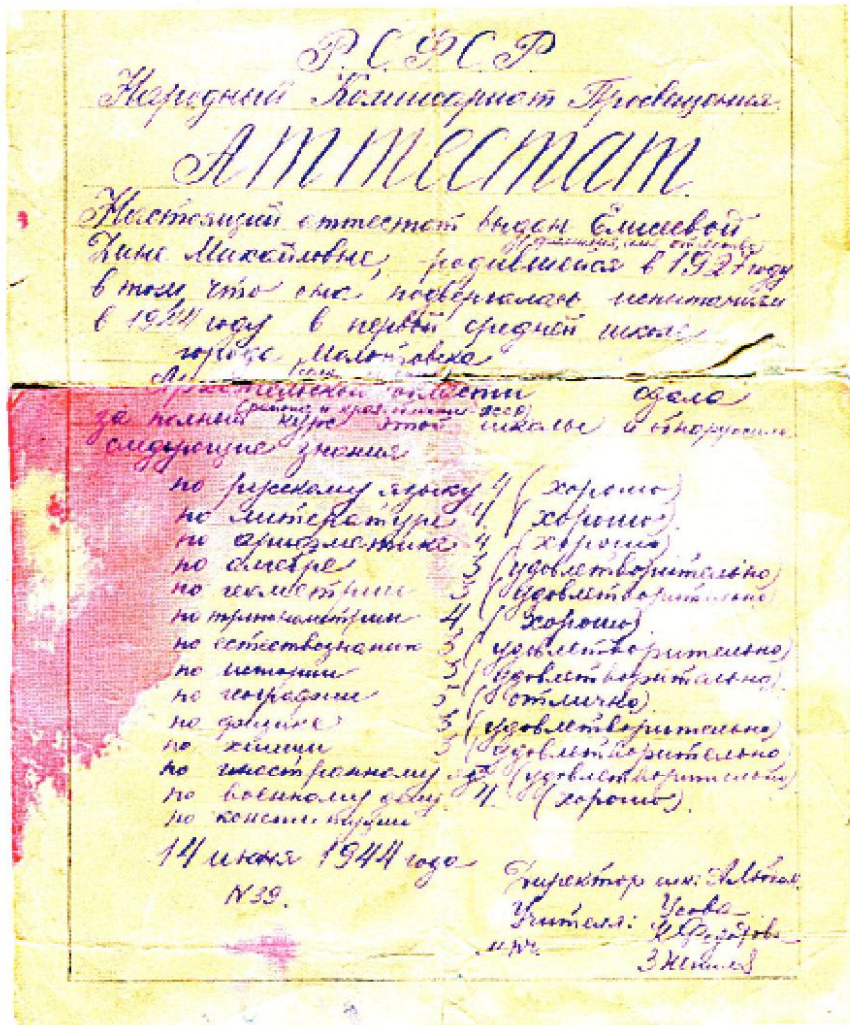 Р.С.Ф.С.Р
Народный Комиссариат Просвещения.
Аттестат
Настоящий аттестат выдан Елисеевой
(фамилия, имя, отчество)
Зине Михайловне, родившейся в 1927 году
в том, что она подвергалась испытаниям
в 1944 году в первой средней школе
города Молотовска
Архангельской области сдала
за полный курс этой школы и обнаружила
следующие знания
по русскому языку 4 (хорошо)
по литературе 4 (хорошо)
по арифметике 4 (хорошо)
по алгебре 3 (удовлетворительно)
по геометрии 3 (удовлетворительно)
по тригонометрии 4 (хорошо)
по естествознанию 3 (удовлетворительно)
по истории 3 (удовлетворительно)
по географии 5 (отлично)
по физике 3 (удовлетворительно)
по химии 3 (удовлетворительно)
по иностранному яз 3 (удовлетворительно)
по военному делу 4 (хорошо)
по конституции
14 июня 1944 года
Директор шк:
N39.
Усова
Учителя:
М.П.